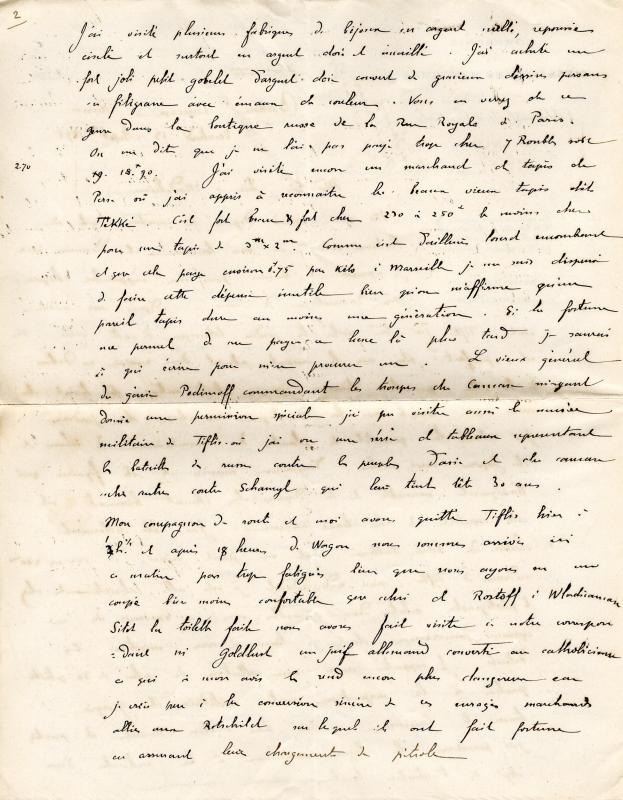 2
J'ai visité plusieurs fabriques de bijoux en argent niellé, repoussé
ciselé et surtout en argent doré et émaillé. J'ai acheté un
fort joli petit gobelet d'argent doré couvert de gracieux dessins persans
en filigrane avec émaux de couleur. Vous en verrez de ce
genre dans la boutique russe de la Rue Royale à Paris.
On me dit que je ne l'ai pas payé trop cher 7 Roubles soit
2.70
19. 18.90. J'ai visité encore un marchand de tapis de
Perse où j'ai appris à reconnaître les beaux vieux tapis dits
Tekké. C'est fort beau & fort cher 230 à 250 le moins cher
pour un tapis de 3m x 2m. Comme c'est d'ailleurs lourd encombrant
et que cela paye environ 0f.75 par kilo à Marseille je me suis dispensé
de faire cette dépense inutile bien qu'on m'affirme qu'un
pareil tapis dure au moins une génération. Si la fortune
me permet de me payer ce luxe là plus tard je saurais
à qui écrire pour m'en procurer un. Le vieux général
du génie Pedimoff commandant les troupes du Caucase m'ayant
donné une permission spéciale j'ai pu visiter aussi le musée
militaire de Tiflis où j'ai vu une série de tableaux représentant
les batailles des russes contre les peuples d'asie et du caucase
entre autres contre Schamyl qui leur tint tête 30 ans.
Mon compagnon de route et moi avons quitté Tiflis hier à
et après 18 heures de Wagon nous sommes arrivés ici
ce matin pas trop fatigués bien que nous ayons eu un
coupé bien moins confortable que celui de Rostoff à Wladicaucase
Sitôt la toilette faite nous avons fait visite à notre correspon
=dant mr Goldlust un juif allemand converti au catholicisme
ce qui à mon avis le rend encore plus dangereux car
je crois peu à la conversion sincère de ces enragés marchands
alliés aux Rotschild sur lequel ils ont fait fortune
en assurant leurs chargements de pétrole